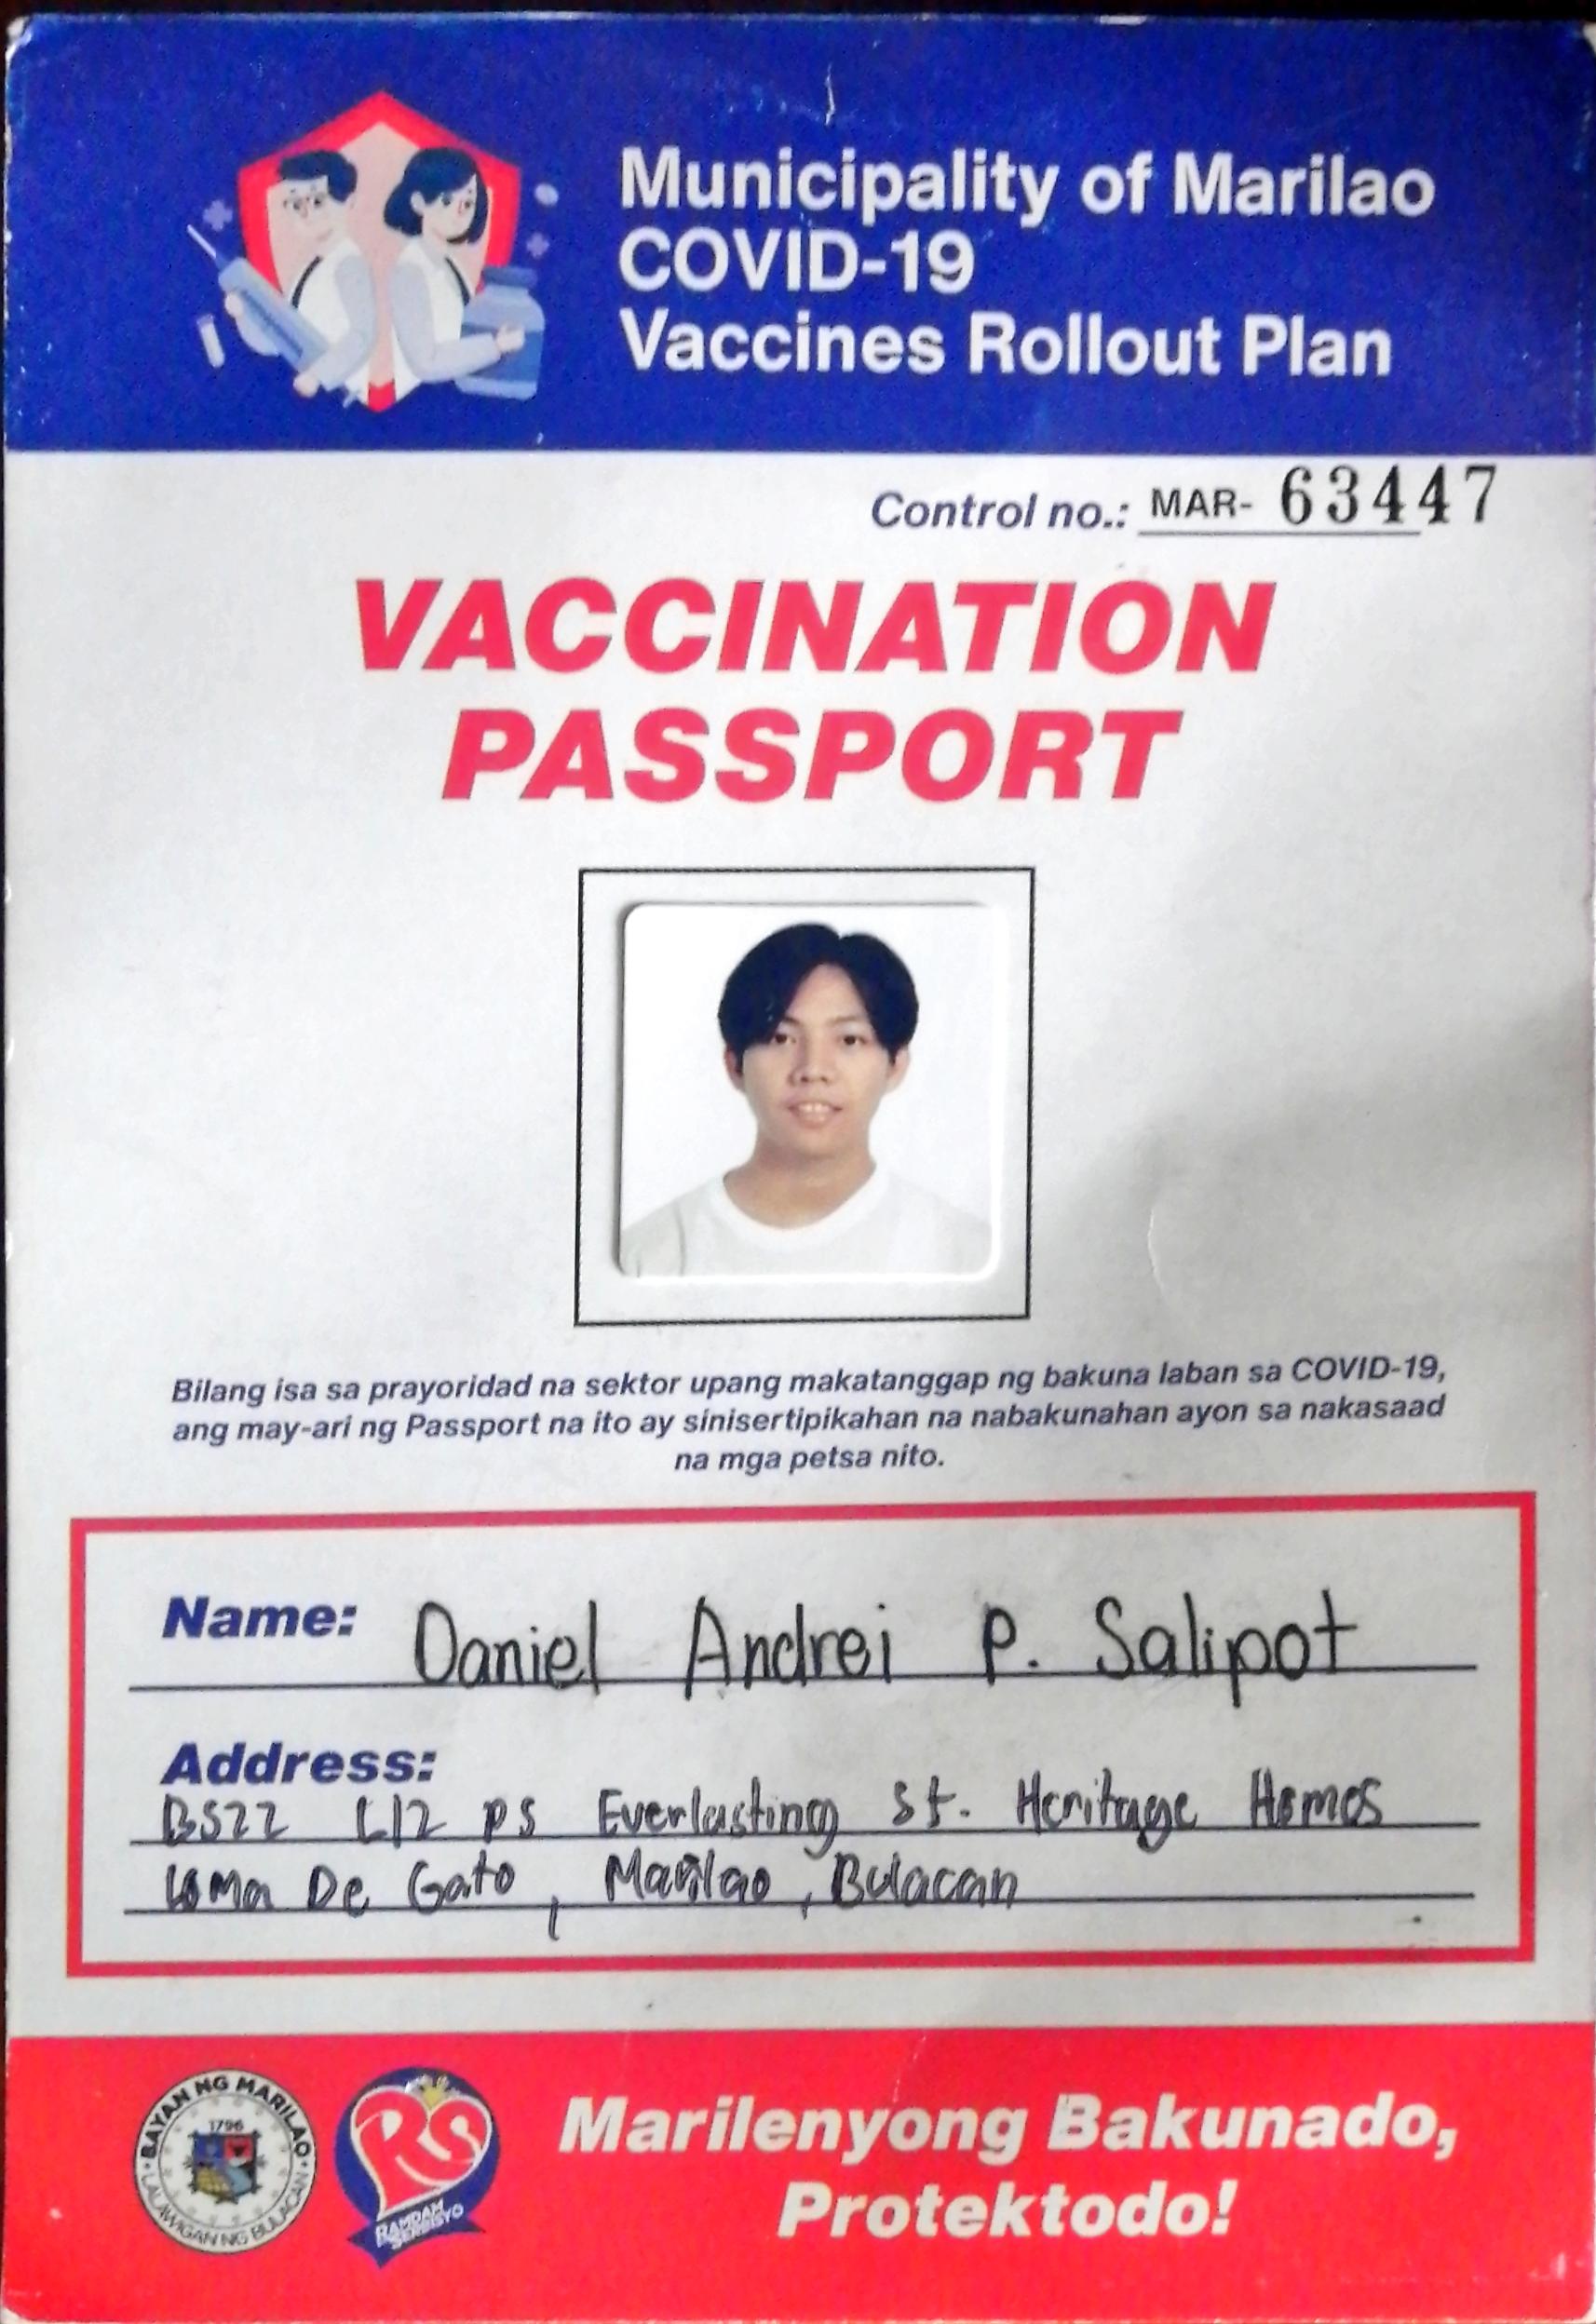 Municipality of Marilao
COVID-19
Vaccines Rollout Plan
Control no.: MAR- 63447
VACCINATION
PASSPORT
Bilang isa sa prayoridad na sektor upang makatanggap ng bakuna laban sa COVID-19,
ang may-ari ng Passport na ito ay sinisertipikahan na nabakunahan ayon sa nakasaad
na mga petsa nito.
Name: Daniel Andrei P. Salipot
Address:
BS22 L12 PS Everlasting St. Heritage Homes
Loma De Gato, Marilao, Bulacan
BAYAN NG MARILAO
1796
LALAWIGAN NG BULACAN
RS
RAMDAM
SERBISYO
Marilenyong Bakunado,
Protektodo!